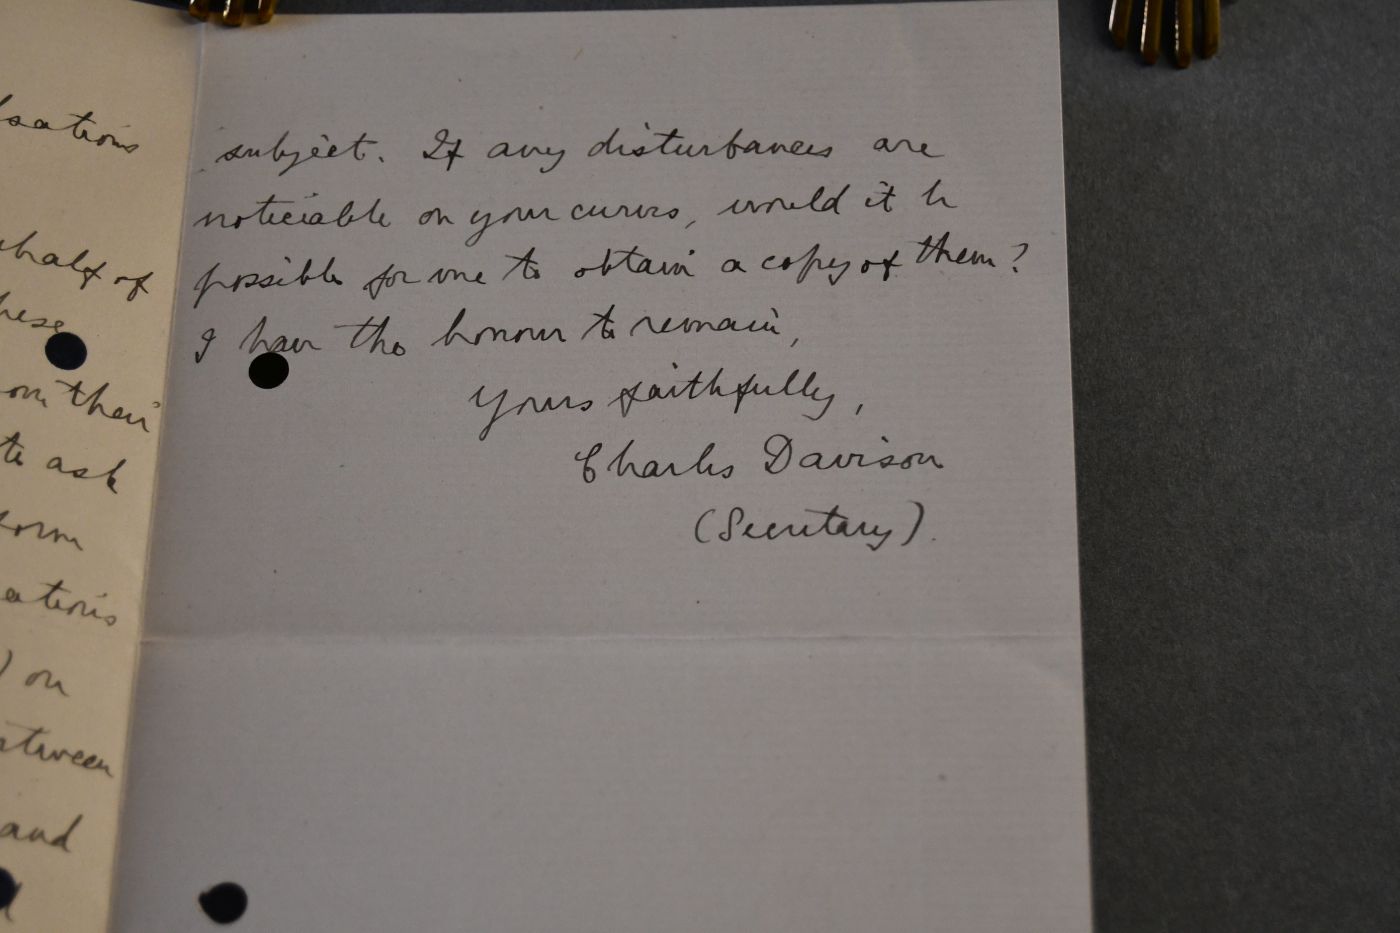 lsations
ehalf of
hese
om their
to ask
form
ations
) on
etween
and
subject. If any disturbances are
noticiable on your curves, would it be
possible for me to obtain a copy of them?
I have the honour to remain,
Yours faithfully,
Charles Davison
(Secretary).